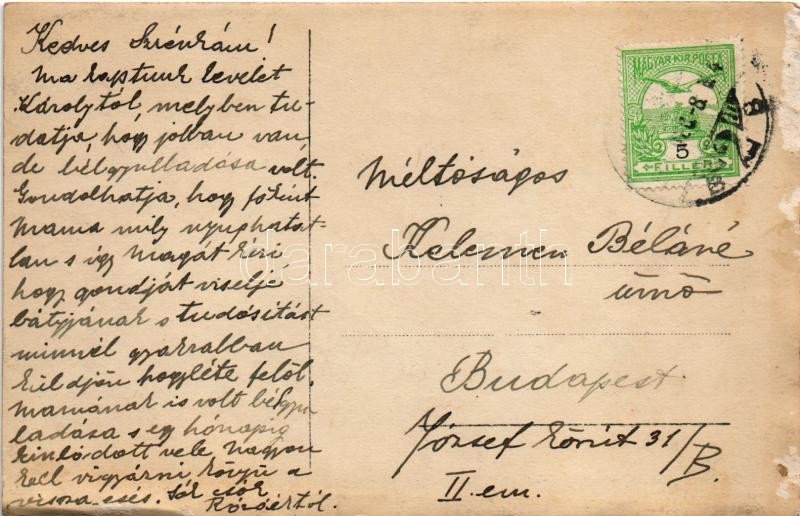 Kedves Irénkám!
Ma kaptunk levelet
Károlytól, melyben tu-
datja, hogy jobban van,
de bélgyulladása volt.
Gondolhatja, hogy főként
Mama mily nyughatat-
lan s így Magát kéri
hogy gondját viselje
bátyjának s tudósítást
minnél gyakrabban
küldjön hogyléte felöl.
Mamának is volt bélgyu
ladása s egy hónapig
kinlódott vele. Nagyon
kell vigyázni a
vissza-esés. Sok csók
MAGYAR KIR. POSTA
5
FILLÉR
Méltóságos
Kelemen Béláné
úrnő
Budapest
József körút 31/B.
II. em.
darabanth